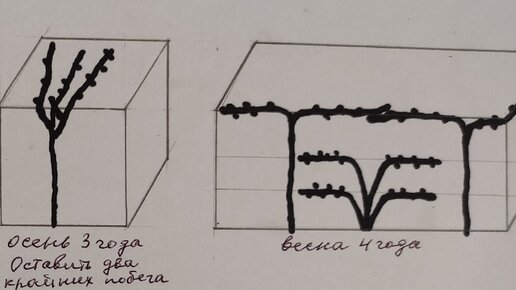 осень 3 года
Оставить два
крайних побега
весна 4 года